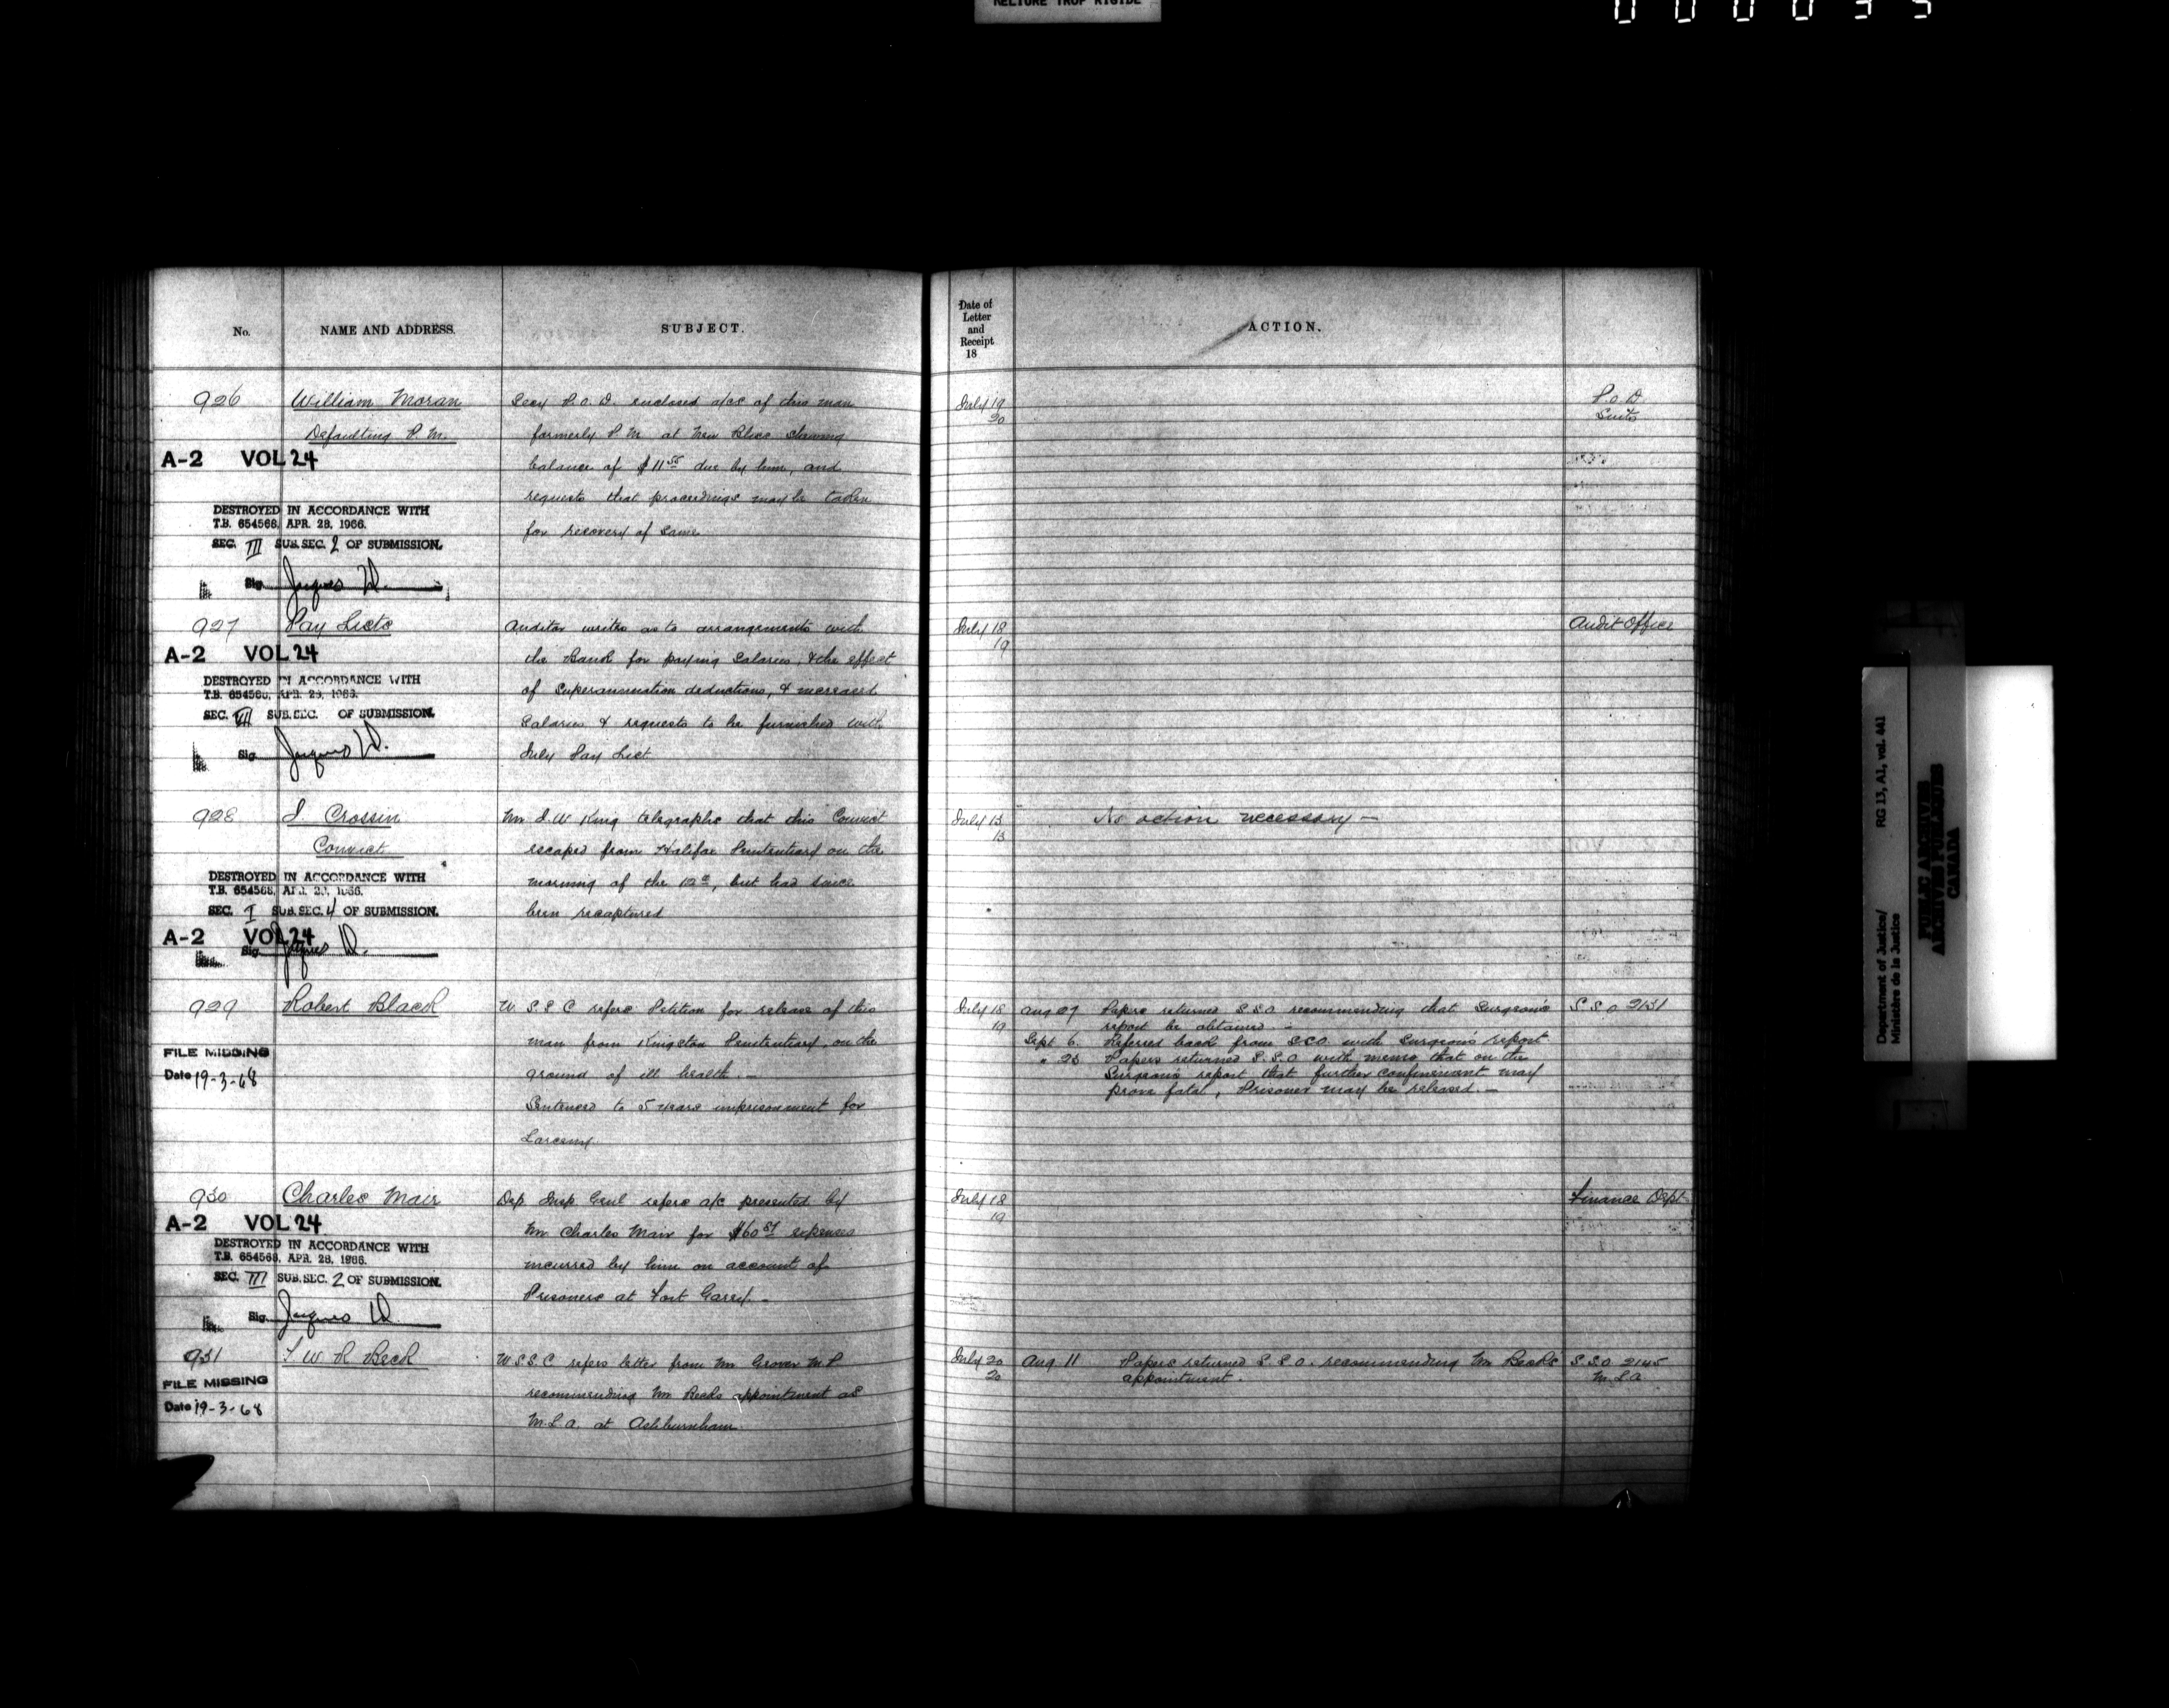 RELIURE TROP RIGIDE
No.
NAME AND ADDRESS.
SUBJECT.
926
William Moran
Defaulting P. M.
A-2 VOL 24
DESTROYED IN ACCORDANCE WITH
T.B. 654568, APR. 28, 1966.
SEC. III SUB. SEC. 2 OF SUBMISSION.
Sig. Jacques D.
Secy P. O. D. enclosed a/cs of this man
formerly P. M. at New Bliss showing
balance of $11 55 due by him, and
requests that proceedings may be taken
for recovery of same
927
Pay Lists
A-2 VOL 24
DESTROYED IN ACCORDANCE WITH
T.B. 654568, APR. 28, 1966.
SEC. VII SUB. SEC. OF SUBMISSION.
Sig. Jacques D.
Auditor writes as to arrangements with
the Bank for paying Salaries, & the effect
of Superannuation deductions, & increased
Salaries & requests to be furnished with
July Pay List
928
J. Crossin
Convict
DESTROYED IN ACCORDANCE WITH
T.B. 654568, APR. 28, 1966.
SEC. I SUB. SEC. 4 OF SUBMISSION.
A-2 VOL 24
Sig. Jacques D.
Mr J. W King telegraphs that this Convict
escaped from Halifax Penitentiary on the
morning of the 12th, but had since
been recaptured
929
Robert Black
FILE MISSING
Date 19-3-68
W S S C refers Petition for release of this
man from Kingston Penitentiary, on the
ground of ill health. —
Sentenced to 5 years imprisonment for
Larceny.
930
Charles Mair
A-2 VOL 24
DESTROYED IN ACCORDANCE WITH
T.B. 654568, APR. 28, 1966.
SEC. III SUB. SEC. 2 OF SUBMISSION.
Sig. Jacques D
Dep. Insp. Genl refers a/c presented by
Mr Charles Mair for expenses
incurred by him on account of
Prisoners at Fort Garry. -
931
W R Beck
FILE MISSING
Date 19-3-68
W.S.S.C refers letter from Mr. Grover M.P
recommending Mr Becks appointment as
M.L.A. at Ashburnham.
Date of
Letter
and
Receipt
18
ACTION.
July 19
20
P.O.D
Suits
July 18
19
Audit Office
July 13
13
No action necessary —
July 18
19
Aug 27 Papers returned S.S.O. recommending that Surgeon's
report be obtained. -
Sept 6. Referred back from S.S.O. with Surgeon's report
" 23 Papers returned S.S.O with memo that on the
Surgeon's report that further confinement may
prove fatal, Prisoner may be released. —
S S O 2131
July 18
19
Finance Dept
July 20
20
Aug 11 Papers returned S.S.O. recommending Mr Beck's
appointment.
S.S.O 2145
M.L.A
Department of Justice/
Ministère de la Justice
RG 13, A1, vol. 441
PUBLIC ARCHIVES
ARCHIVES PUBLIQUES
CANADA